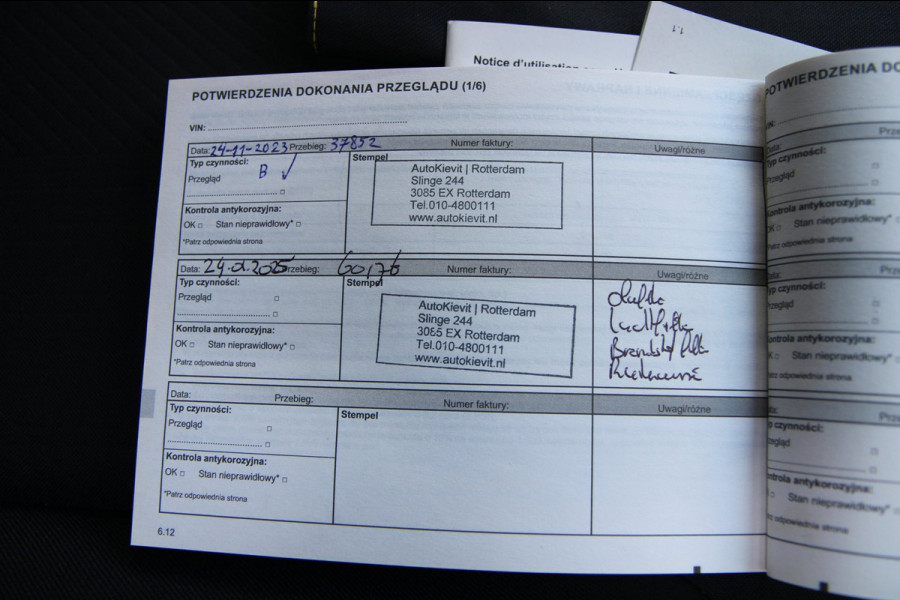 1.1
Notice d'utilisation
POTWIERDZENIA DOKONANIA PRZEGLĄDU (1/6)
VIN:
Data: 24-11-2023 Przebieg: 37852 Numer faktury: Uwagi/różne
Typ czynności:
Przegląd B ✓
Kontrola antykorozyjna:
OK □ Stan nieprawidłowy* □
*Patrz odpowiednia strona
Stempel
AutoKievit | Rotterdam
Slinge 244
3085 EX Rotterdam
Tel.010-4800111
www.autokievit.nl
Data: Przebieg: Numer faktury: Uwagi/różne
Typ czynności:
Przegląd □
□
Kontrola antykorozyjna:
OK □ Stan nieprawidłowy* □
*Patrz odpowiednia strona
Stempel
AutoKievit | Rotterdam
Slinge 244
3085 EX Rotterdam
Tel.010-4800111
www.autokievit.nl
Data: Przebieg: Numer faktury: Uwagi/różne
Typ czynności:
Przegląd □
□
Kontrola antykorozyjna:
OK □ Stan nieprawidłowy* □
*Patrz odpowiednia strona
Stempel
6.12
POTWIERDZENIA
Kontrola antykorozyjna:
Stan nieprawidłowy*
*Patrz odpowiednia strona
Typ czynności:
Kontrola antykorozyjna:
Stan nieprawidłowy*
*Patrz odpowiednia strona
czynności:
antykorozyjna:
Stan nieprawidłowy*
odpowiednia strona